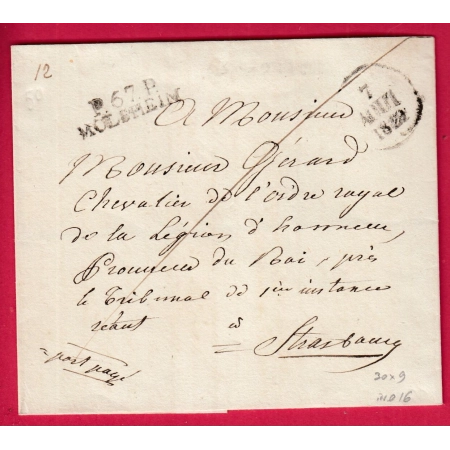 12
P.67.P.
MOLSHEIM
7
1822
A Monsieur
Monsieur Gérard
Chevalier de l'ordre royal
de la Légion d'honneur,
Procureur du Roi, près
le Tribunal de 1ère instance
séant à
= Strasbourg
= port payé
20x9
ind 16